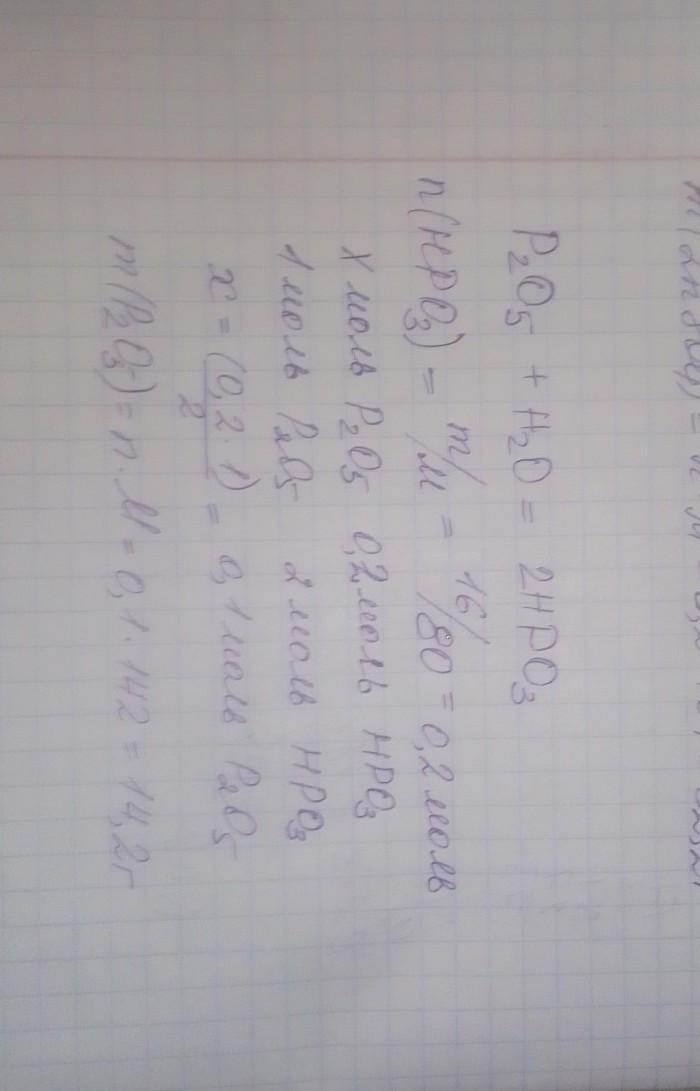 P₂O₅ + H₂O = 2HPO₃
n(HPO₃) = m/M = 16/80 = 0,2 моль
X моль P₂O₅ 0,2 моль HPO₃
1 моль P₂O₅ 2 моль HPO₃
x = (0,2 · 1)/2 = 0,1 моль P₂O₅
m(P₂O₅) = n · M = 0,1 · 142 = 14,2г